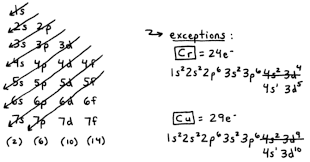 1s
2s 2p
3s 3p 3d
4s 4p 4d 4f
5s 5p 5d 5f
6s 6p 6d 6f
7s 7p 7d 7f
(2) (6) (10) (14)
exceptions:
Cr = 24e⁻
1s²2s²2p⁶ 3s²3p⁶ 4s² 3d⁴
4s¹ 3d⁵
Cu = 29e⁻
1s²2s²2p⁶ 3s²3p⁶ 4s² 3d⁹
4s¹ 3d¹⁰